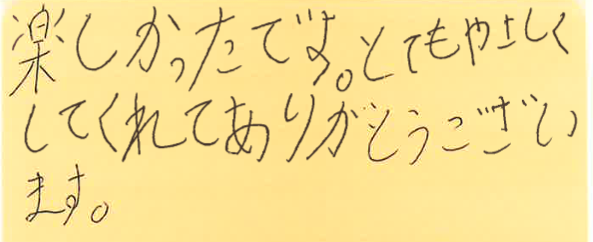 楽しかったです。とてもやさしく
してくれてありがとうござい
ます。